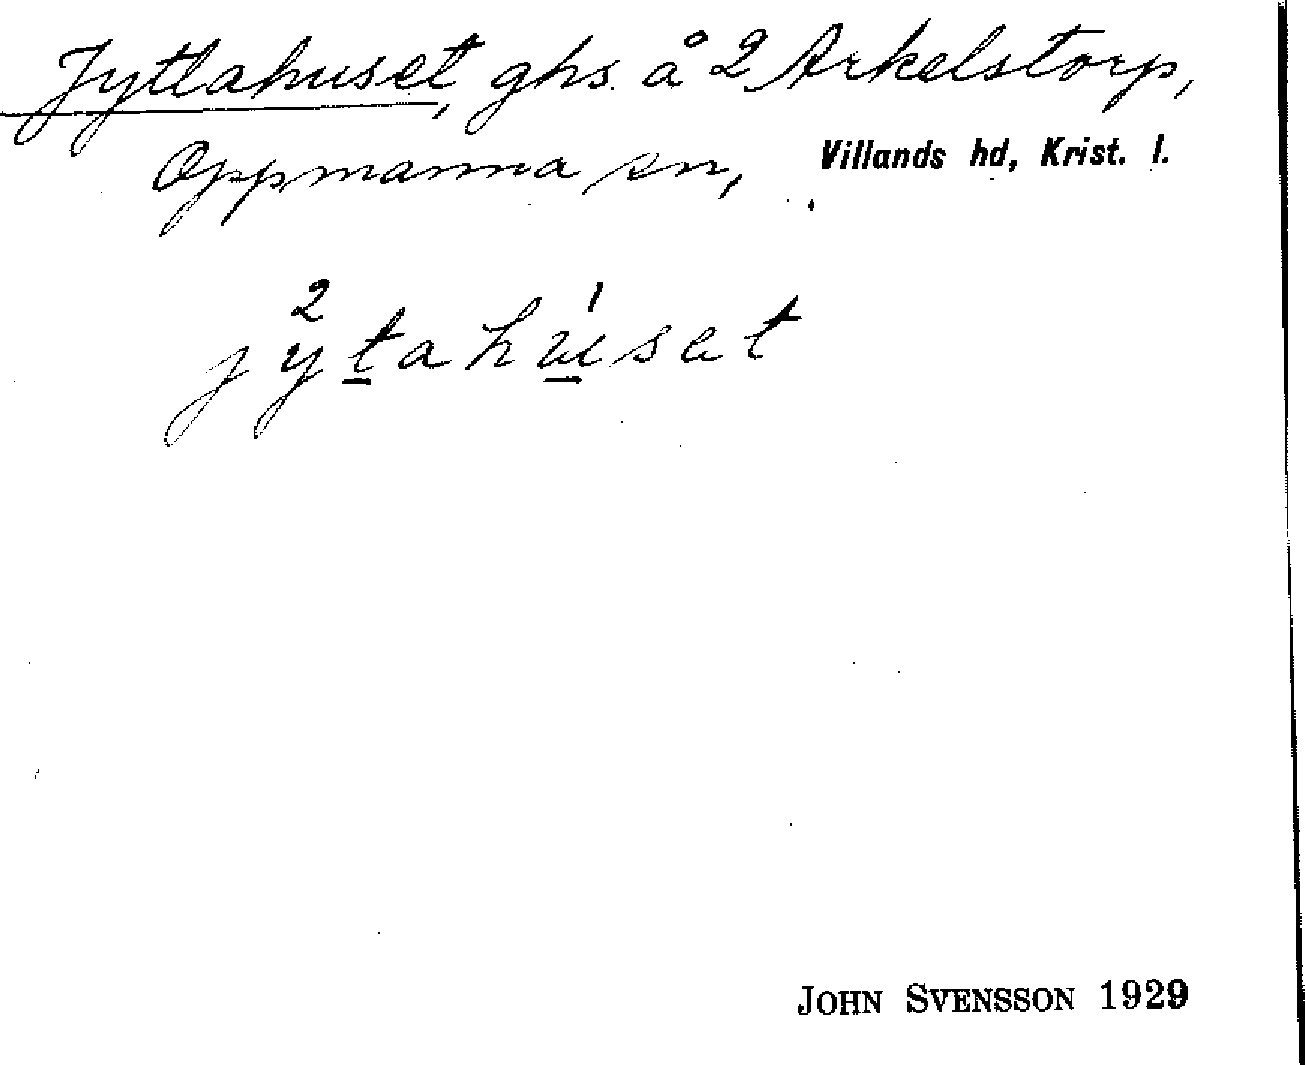 Jyttahuset, ghs. å 2 Arkelstorp,
Oppmanna sn, Villands hd, Krist. l.
2 1
jytahúset
JOHN SVENSSON 1929